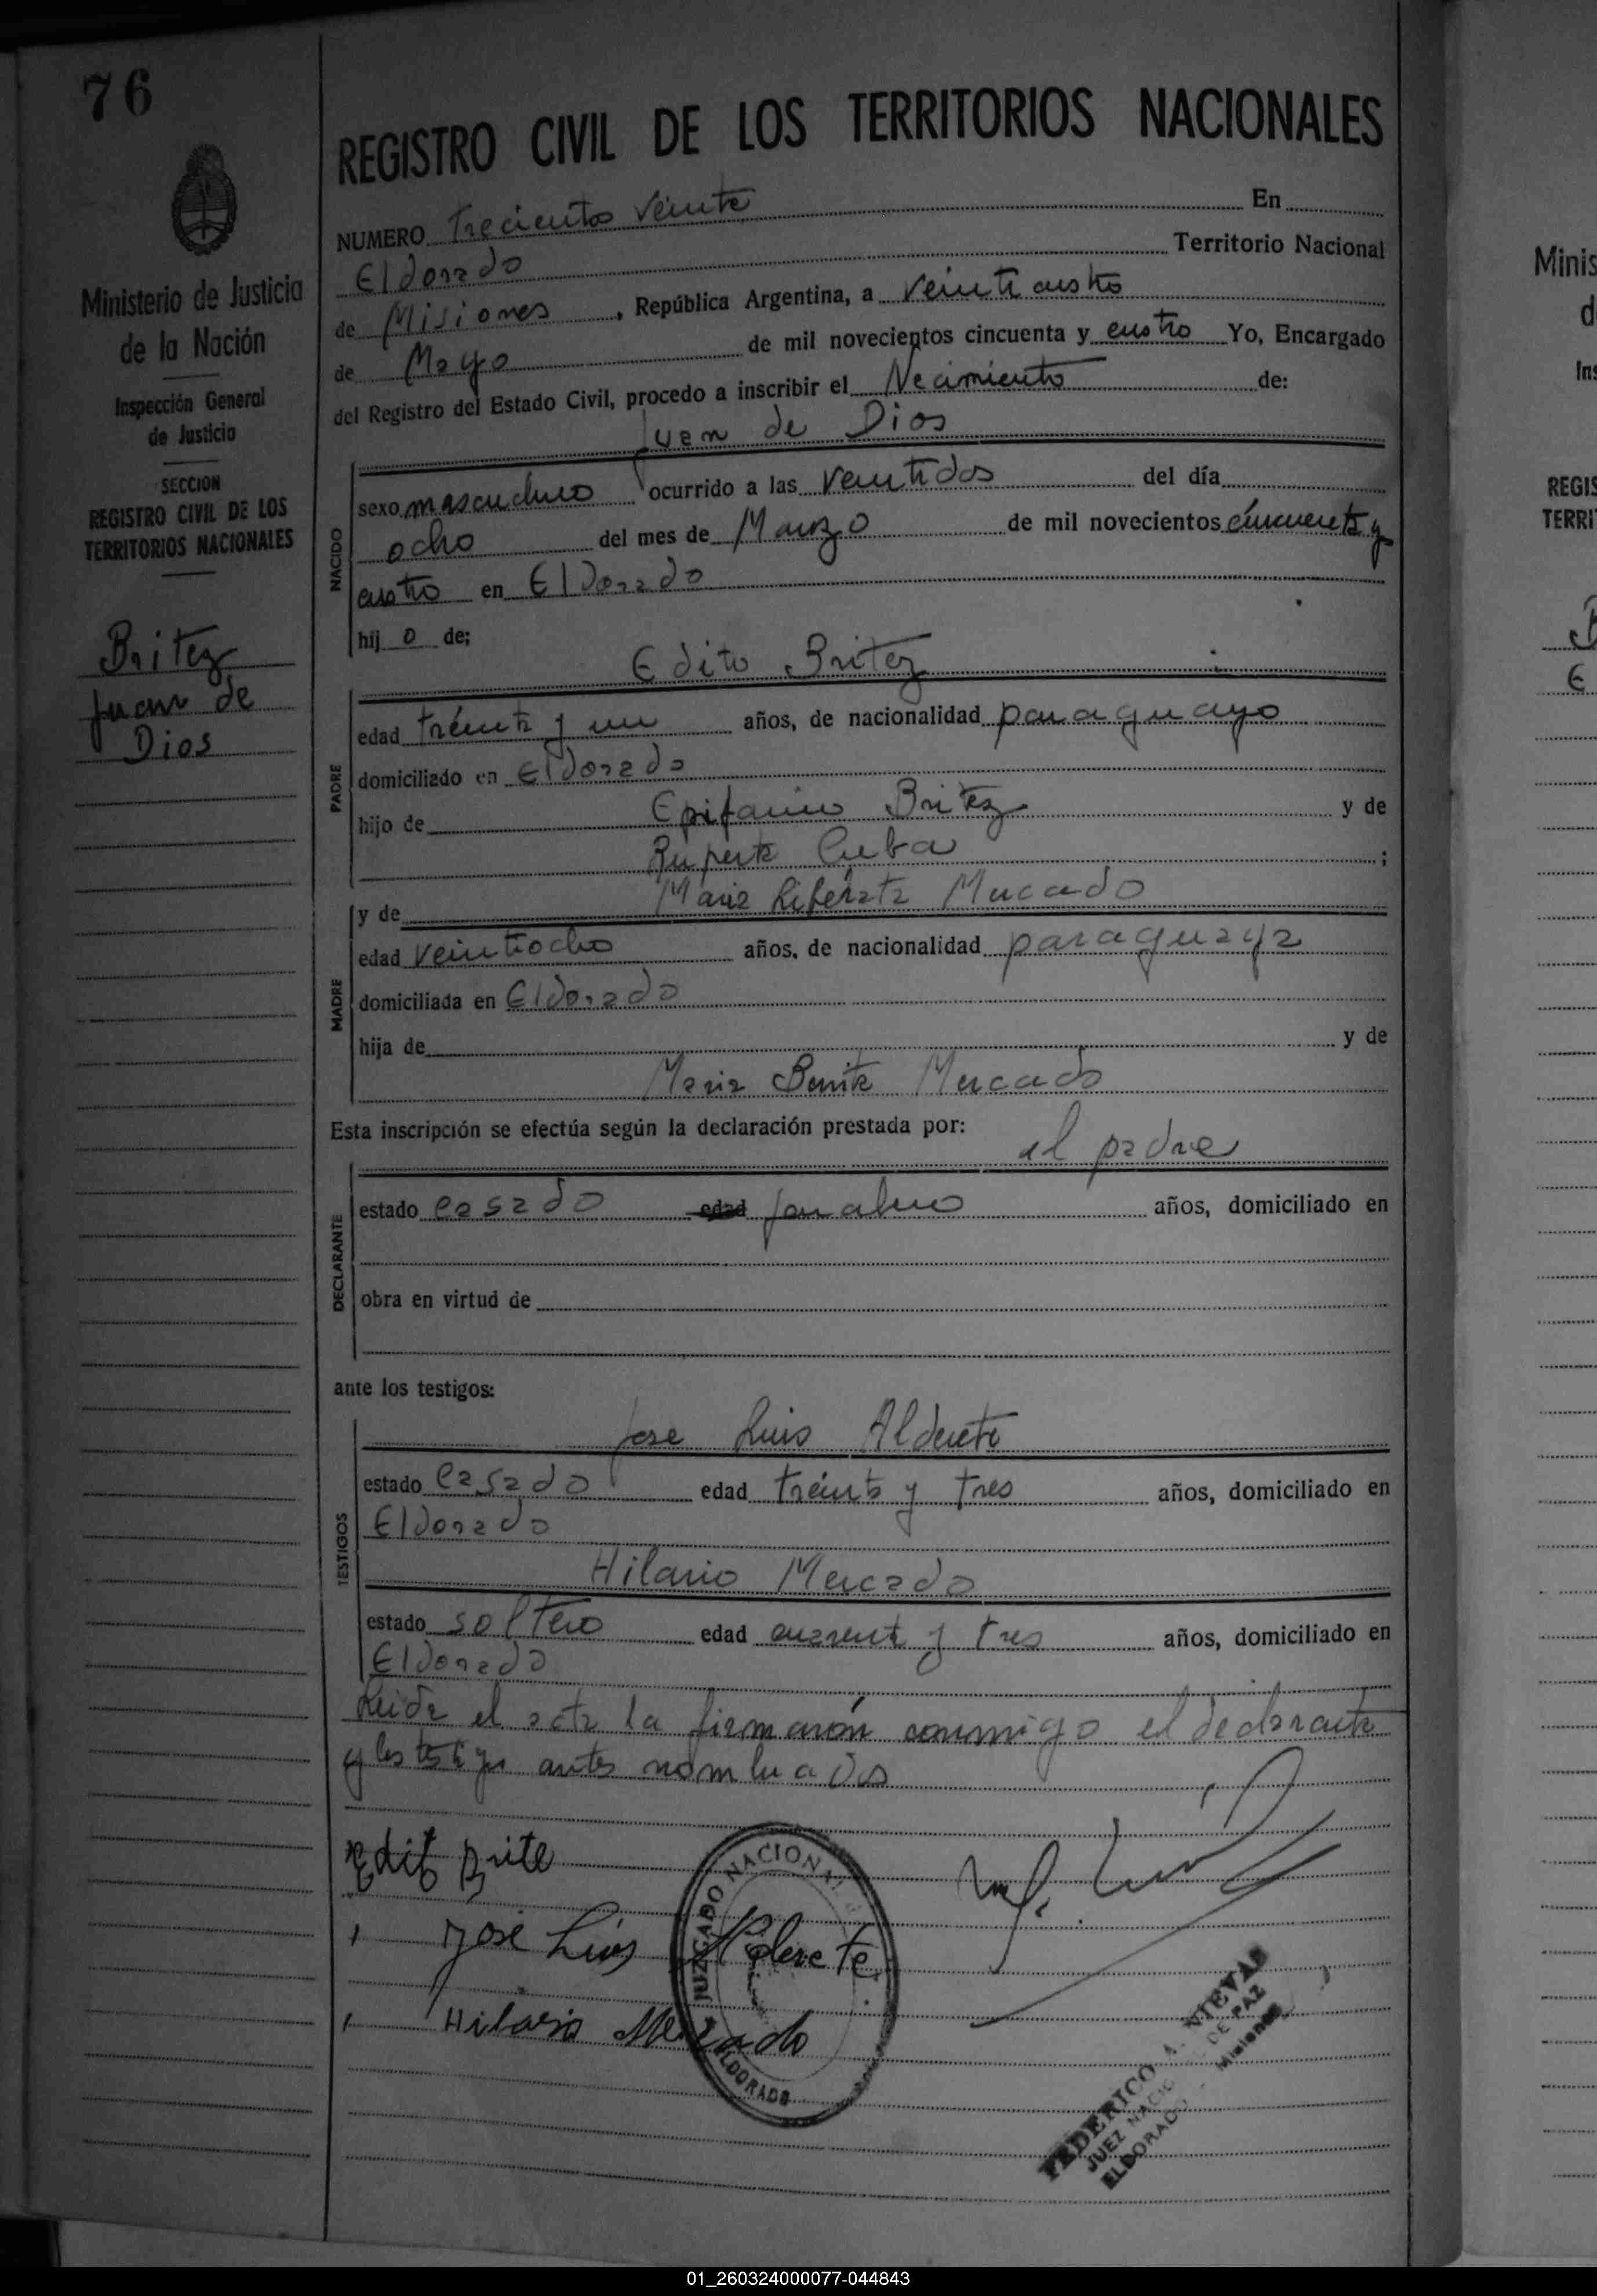 76
Ministerio de Justicia
de la Nación
Inspección General
de Justicia
SECCION
REGISTRO CIVIL DE LOS
TERRITORIOS NACIONALES
Britez
Juan de
Dios
REGISTRO CIVIL DE LOS TERRITORIOS NACIONALES
NUMERO Treciento Veinte En
Eldorado Territorio Nacional
de Misiones, República Argentina, a Veinticuatro
de Mayo de mil novecientos cincuenta y cuatro Yo, Encargado
del Registro del Estado Civil, procedo a inscribir el Nacimiento de:
Juan de Dios
NACIDO
sexo masculino ocurrido a las Veintidos del día
ocho del mes de Marzo de mil novecientos cincuenta y
cuatro en Eldorado
hij o de;
Edito Britez
PADRE
edad treinta y un años, de nacionalidad paraguayo
domiciliado en Eldorado
hijo de Epifanio Britez y de
Ruperta Cuba ;
y de Maria Liberata Mercado
MADRE
edad veintiocho años, de nacionalidad paraguaya
domiciliada en Eldorado
hija de y de
Maria Benita Mercado
Esta inscripción se efectúa según la declaración prestada por:
el padre
DECLARANTE
estado casado edad jornalero años, domiciliado en
obra en virtud de
ante los testigos:
TESTIGOS
Jose Luis Alderete
estado casado edad treinta y tres años, domiciliado en
Eldorado
Hilario Mercado
estado soltero edad cuarenta y tres años, domiciliado en
Eldorado
Leida el acta la firmarón conmigo el declarante
y los testigos antes nombrados
Edito Brite
Jose Luis Alderete
Hilario Mercado
JUZGADO NACIONAL
ELDORADO
FEDERICO A. NIEVAS
JUEZ NACIONAL DE PAZ
ELDORADO - Misiones
Minis
d
Ins
REGIS
TERRI
01_260324000077-044843